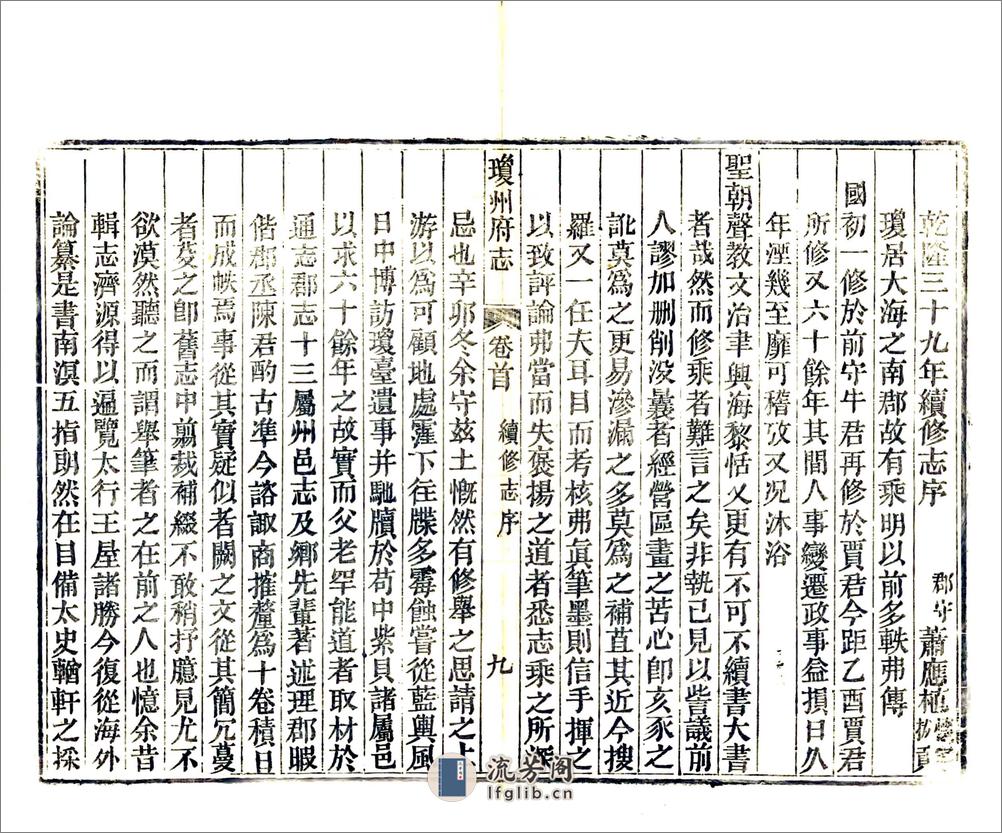 乾隆三十九年續修志序　郡守蕭應植
瓊居大海之南郡故有乘明以前多軼弗傳
國初一修於前守牛君再修於賈君今距乙酉賈君
所修又六十餘年其間人事變遷政事益損日久
年湮幾至靡可稽攷又况沐浴
聖朝聲教文治聿興海黎恬乂更有不可不續書大書
者哉然而修乘者難言之矣非執已見以訾議前
人謬加删削没曩者經營區畫之苦心卽亥豕之
訛莫爲之更易滲漏之多莫爲之補苴其近今搜
羅又一任夫耳目而考核弗眞筆墨則信手揮之
以致評論弗當而失褒揚之道者悉志乘之所深
瓊州府志　卷首　續修志序　九
忌也辛卯冬余守兹土慨然有修舉之思請之上
游以爲可顧地處窪下往牒多霉蝕嘗從藍輿風
日中博訪瓊臺遺事并馳牘於苟中紫貝諸屬邑
以求六十餘年之故實而父老罕能道者取材於
通志郡志十三屬州邑志及鄉先輩著述理郡暇
偕郡丞陳君酌古準今諮諏商搉釐爲十卷積日
而成帙焉事從其實疑似者闕之文從其簡冗蔓
者芟之卽舊志中剪裁補綴不敢稍抒臆見尤不
欲漠然聽之而謂舉筆者之在前之人也憶余昔
輯志濟源得以遍覽太行王屋諸勝今復從海外
論纂是書南溟五指朗然在目備太史輶軒之採
流芳阁
lfglib.cn